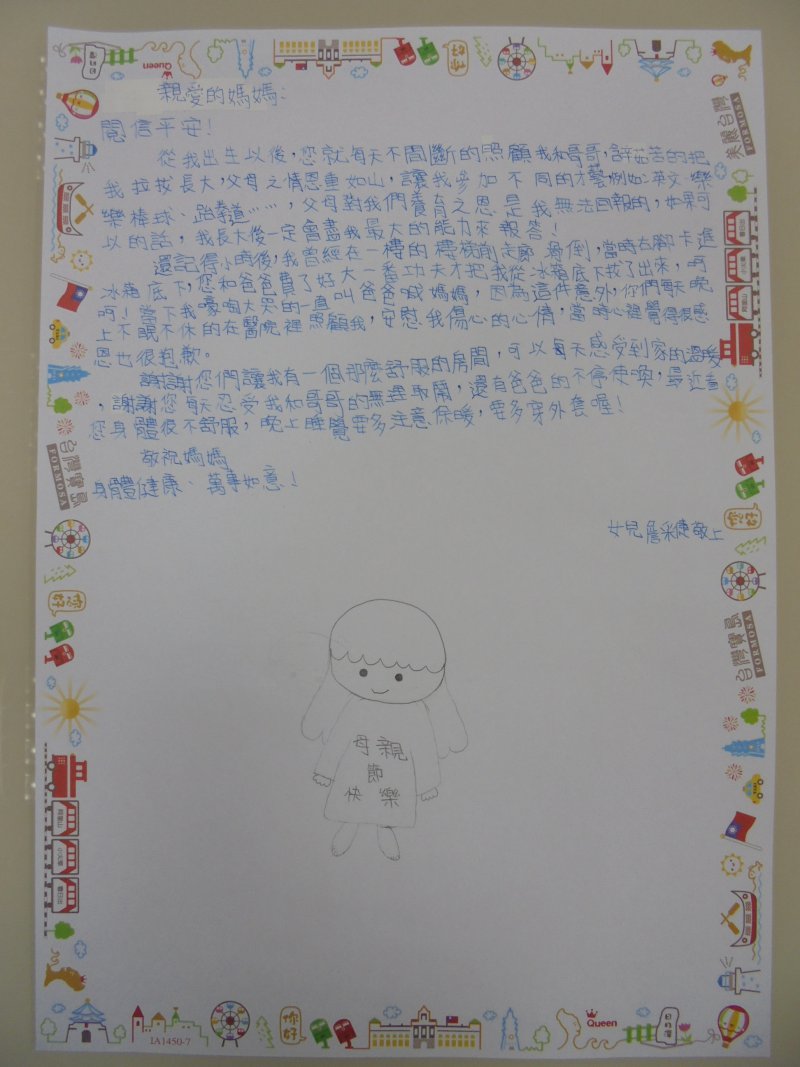 親愛的媽媽:
閱信平安!
從我出生以後,您就每天不間斷的照顧我和哥哥,辛苦的把
我拉拔長大,父母之情恩重如山,讓我參加不同的才藝例如:英文、樂
樂棒球、跆拳道……,父母對我們養育之恩是我無法回報的,如果可
以的話,我長大後一定會盡我最大的能力來報答!
還記得小時後,我曾經在一樓的樓梯走廊滑倒,當時右腳卡進
冰箱底下,您和爸爸費了好大一番功夫才把我從冰箱底下救了出來,呵
呵!當下我嚎啕大哭的一直叫爸爸喊媽媽,因為這件意外,你們每天晚
上不眠不休的在醫院裡照顧我,安慰我傷心的心情,當時心裡覺得很感
恩也很抱歉。
謝謝您們讓我有一個那麼舒服的房間,可以每天感受到家的溫暖
,謝謝您每天忍受我和哥哥的無理取鬧,還有爸爸的不停使喚,最近看
您身體很不舒服,晚上睡覺要多注意保暖,要多穿外套喔!
敬祝媽媽
身體健康、萬事如意!
女兒詹采婕敬上
母親
節
快樂
Queen
你好
美麗台灣
FORMOSA
台灣寶島
FORMOSA
你好
你好
台灣寶島
FORMOSA
你好
Queen
IA1450-7